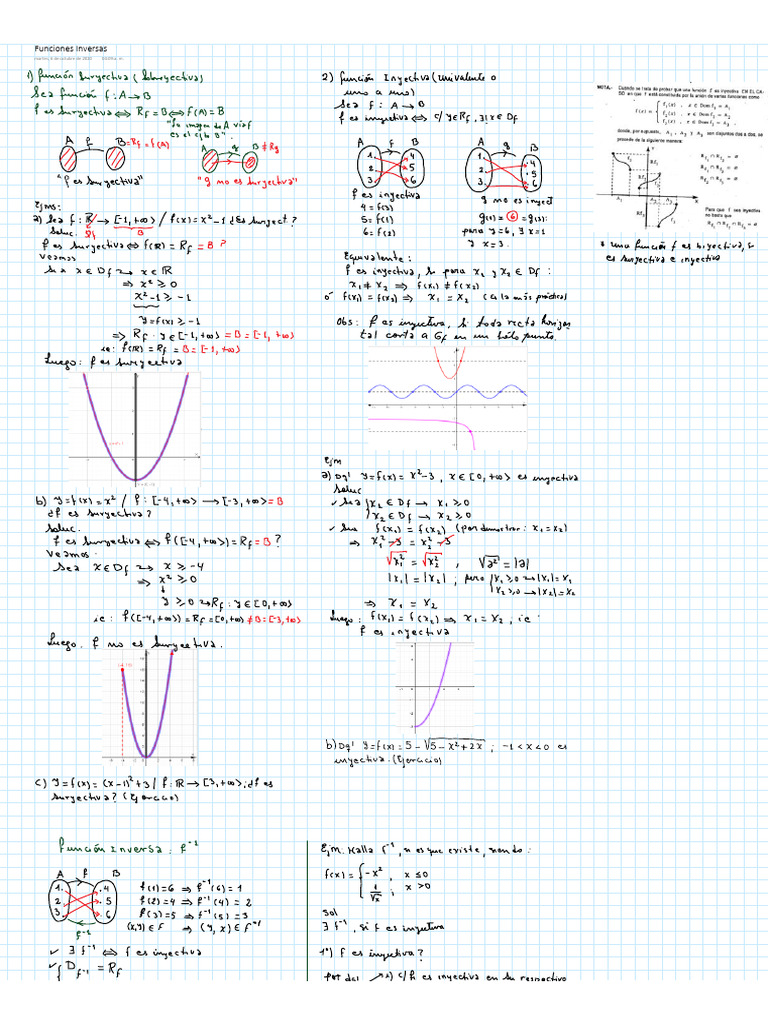 Funciones Inversas
1) Función Suryectiva (Sobreyectiva)
Sea función f: A → B
f es suryectiva ⇔ Rf = B ⇔ f(A) = B
"La imagen de A vía f
es el cjto B".
A f B = Rf = f(A) A g B ≠ Rg
"f es suryectiva" "g no es suryectiva"
Ejms:
a) Sea f: ℝ → [-1, +∞> / f(x) = x² - 1 ¿Es suryect?
Df B
Soluc.
f es suryectiva ⇔ f(ℝ) = Rf = B ?
Veamos
Si x ∈ Df → x ∈ ℝ
⇒ x² ≥ 0
x² - 1 ≥ -1
y = f(x) ≥ -1
⇒ Rf : y ∈ [-1, +∞> = B = [-1, +∞>
ie: f(ℝ) = Rf = B = [-1, +∞>
Luego: f es suryectiva
b) y = f(x) = x² / f: [-4, +∞> → [-3, +∞> = B
¿f es suryectiva?
Soluc.
f es suryectiva ⇔ f([-4, +∞>) = Rf = B ?
Veamos.
Sea x ∈ Df → x ≥ -4
⇒ x² ≥ 0
y ≥ 0 → Rf : y ∈ [0, +∞>
ie: f([-4, +∞>) = Rf = [0, +∞> ≠ B = [-3, +∞>
Luego. f no es suryectiva.
c) y = f(x) = (x-1)² + 3 / f: ℝ → [3, +∞>; ¿f es
suryectiva? (Ejercicio)
2) Función Inyectiva (Univalente o
uno a uno)
Sea f: A → B
f es inyectiva ⇔ c/ y ∈ Rf, ∃! x ∈ Df
A f B A g B
1. .4 1. .4
2. .5 2. .5
3. .6 3. .6
f es inyectiva g no es inyect
4 = f(3) g(2) = 6 = g(3):
5 = f(1) para y = 6, ∃ x = 2
6 = f(2) y x = 3.
Equivalente:
f es inyectiva, si para x₁ y x₂ ∈ Df:
x₁ ≠ x₂ ⇒ f(x₁) ≠ f(x₂)
ó f(x₁) = f(x₂) ⇒ x₁ = x₂ (es la más práctica)
Obs: f es inyectiva, si toda recta horizon
tal corta a Gf en un sólo punto.
Ejm
a) Dq' y = f(x) = x² - 3, x ∈ [0, +∞> es inyectiva
Soluc
✓ Sea x₁ ∈ Df → x₁ ≥ 0
x₂ ∈ Df → x₂ ≥ 0
✓ Si f(x₁) = f(x₂) (por demostrar: x₁ = x₂)
⇒ x₁² - 3 = x₂² - 3
√x₁² = √x₂² ; √a² = |a|
|x₁| = |x₂| ; pero x₁ ≥ 0 → |x₁| = x₁
x₂ ≥ 0 → |x₂| = x₂
⇒ x₁ = x₂
Luego: f(x₁) = f(x₂) ⇒ x₁ = x₂, ie
f es inyectiva
b) Dq' y = f(x) = 5 - √(5 - x² + 2x) ; -1 < x < 0 es
inyectiva. (Ejercicio)
NOTA.- Cuando se trata de probar que una función f es inyectiva EN EL CA-
SO en que f está constituida por la unión de varias funciones como
f₁(x) , x ∈ Dom f₁ = A₁
f(x) = f₂(x) , x ∈ Dom f₂ = A₂
f₃(x) , x ∈ Dom f₃ = A₃
donde, por supuesto, A₁, A₂ y A₃ son disjuntos dos a dos, se
procede de la siguiente manera:
Rf₁ ∩ Rf₂ = ∅
Rf₁ ∩ Rf₃ = ∅
Rf₂ ∩ Rf₃ = ∅
Para que f sea inyectiva
no basta que
Rf₁ ∩ Rf₂ ∩ Rf₃ = ∅
* Una función f es biyectiva, si
es suryectiva e inyectiva
Función Inversa: f⁻¹
A f B
1. .4 f(1) = 6 ⇒ f⁻¹(6) = 1
2. .5 f(2) = 4 ⇒ f⁻¹(4) = 2
3. .6 f(3) = 5 ⇒ f⁻¹(5) = 3
f⁻¹ (x,y) ∈ f ⇒ (y,x) ∈ f⁻¹
✓ ∃ f⁻¹ ⇔ f es inyectiva
✓ D f⁻¹ = Rf
Ejm. Halla f⁻¹, si es que existe, siendo:
f(x) = -x² , x ≤ 0
1/√x , x > 0
Sol
∃ f⁻¹, si f es inyectiva
1°) f es inyectiva?
Por def a) c/f es inyectiva en su respectivo